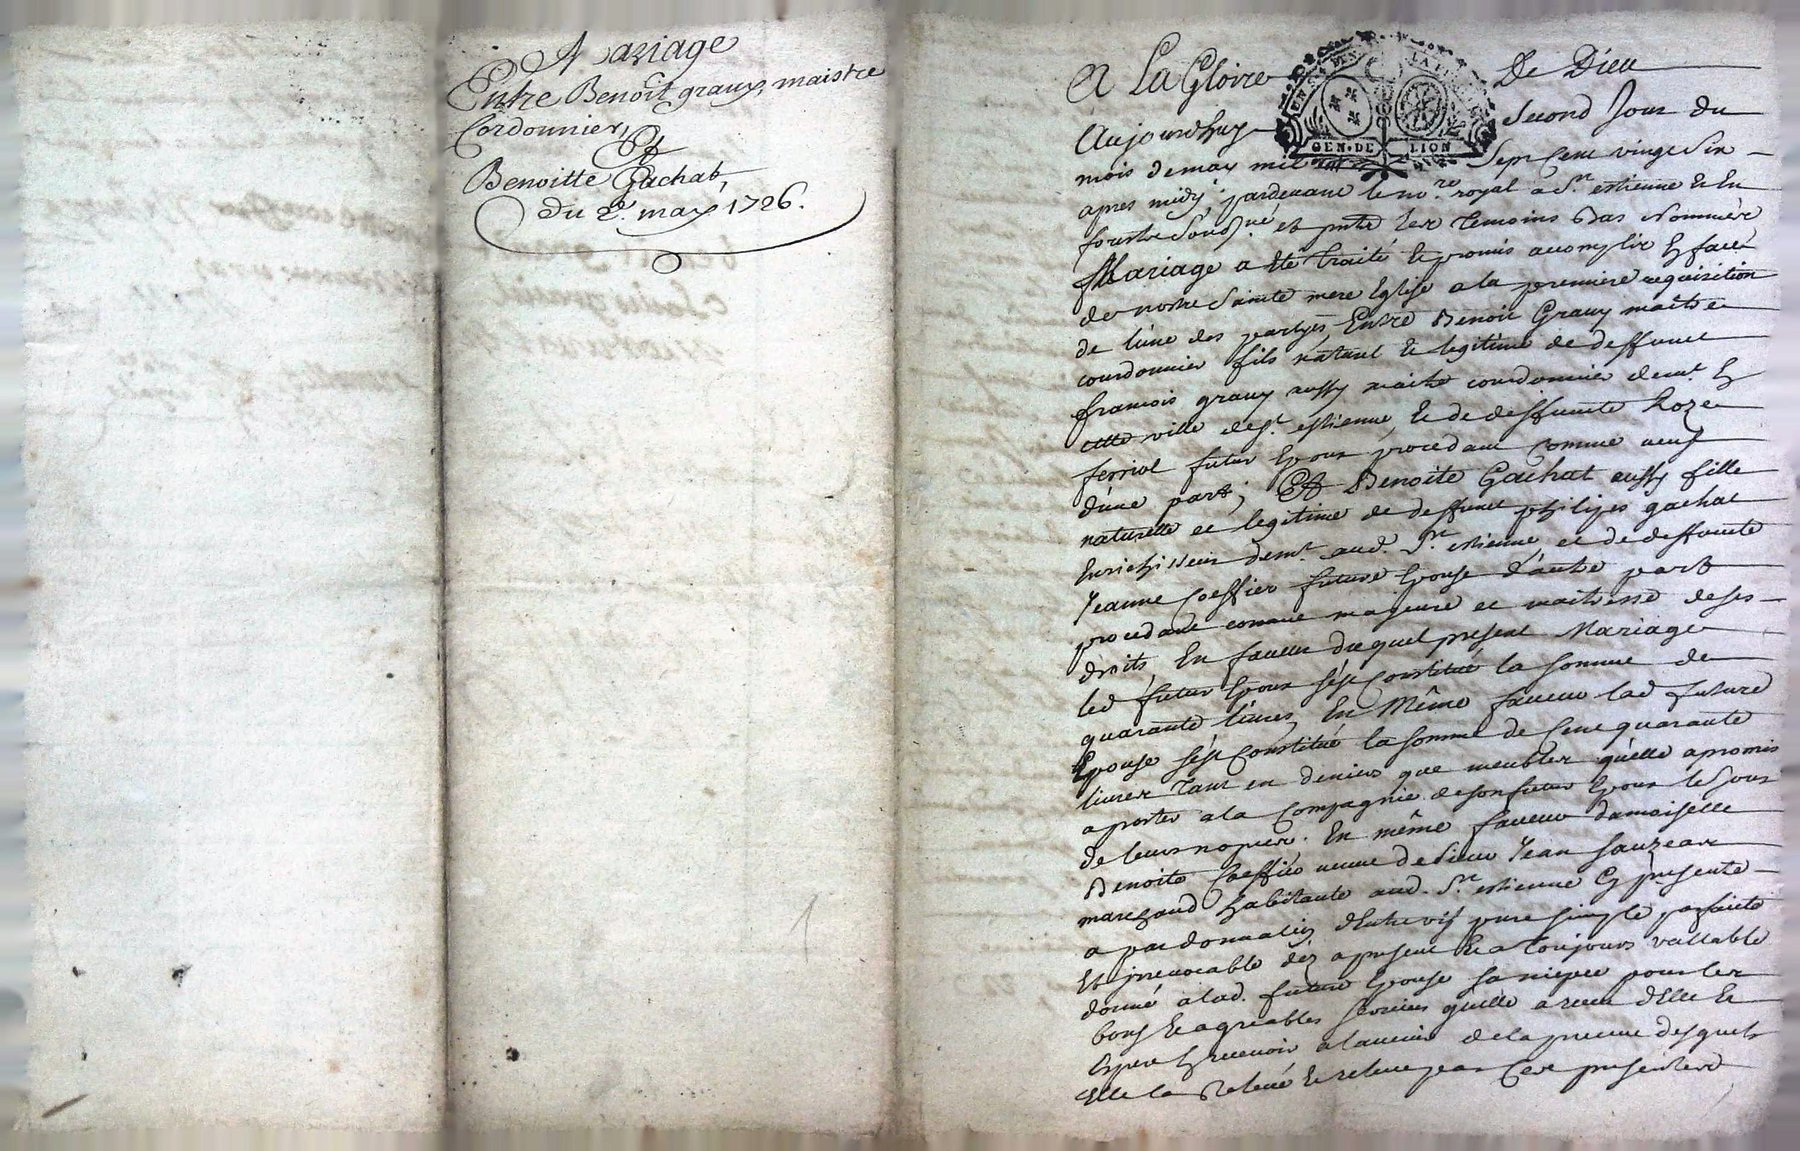 Mariage
Entre Benoît graux, maistre
Cordonnier,
Et
Benoitte Gachat,
du 2e. may 1726.
A La Gloire De Dieu
GEN. DE LION
Aujourdhuy second Jour du
mois de may mil sept cent vingt six
apres midy, pardevant le no.re royal à St. estienne de en
forest soussigné et présents les témoins bas nommés
Mariage a été traité et promis acomplir en face
de nostre sainte mere Eglise a la premiere requisition
de lune des partyes Entre Benoit Graux maitre
courdonnier fils naturel et legitime de deffunct
francois graux aussy maitre courdonnier demt. en
cette ville de St. estienne, et de deffuncte Roze
ferriol futur Epoux procedant comme veuf
d'une part; Et Benoite Gachat aussy fille
naturelle et legitime de deffunct philipes gachat
Enrichisseur demt. aud. St. estienne et de deffuncte
Jeanne Coeffier future Epouse d'autre part
procedant comme majeure et maitresse de ses
droits, En faveur duquel present Mariage
led futur Epoux s'est Constitué la somme de
quarante livres, En Même faveur lad future
Epouse s'est Constitué la somme de Cent quarante
livres tant en deniers que meubles qu'elle a promis
aporter a la Compagnie de son futur Epoux le Jour
de leurs nopces. En même faveur damoiselle
Benoite Coeffier veuve de sieur Jean Sauzear
marchand habitante aud. St. estienne Et présente
a par donnation d'Entre vifs pure simple parfaite
Et irrevocable dez a present Et a toujours vallable
donné a lad. future Epouse sa niepce pour les
bons Et agreables services qu'elle a receu d'Elle Et
Espere En recevoir a l'avenir de la preuve desquels
Elle la relevé Et releve par Ces presentes